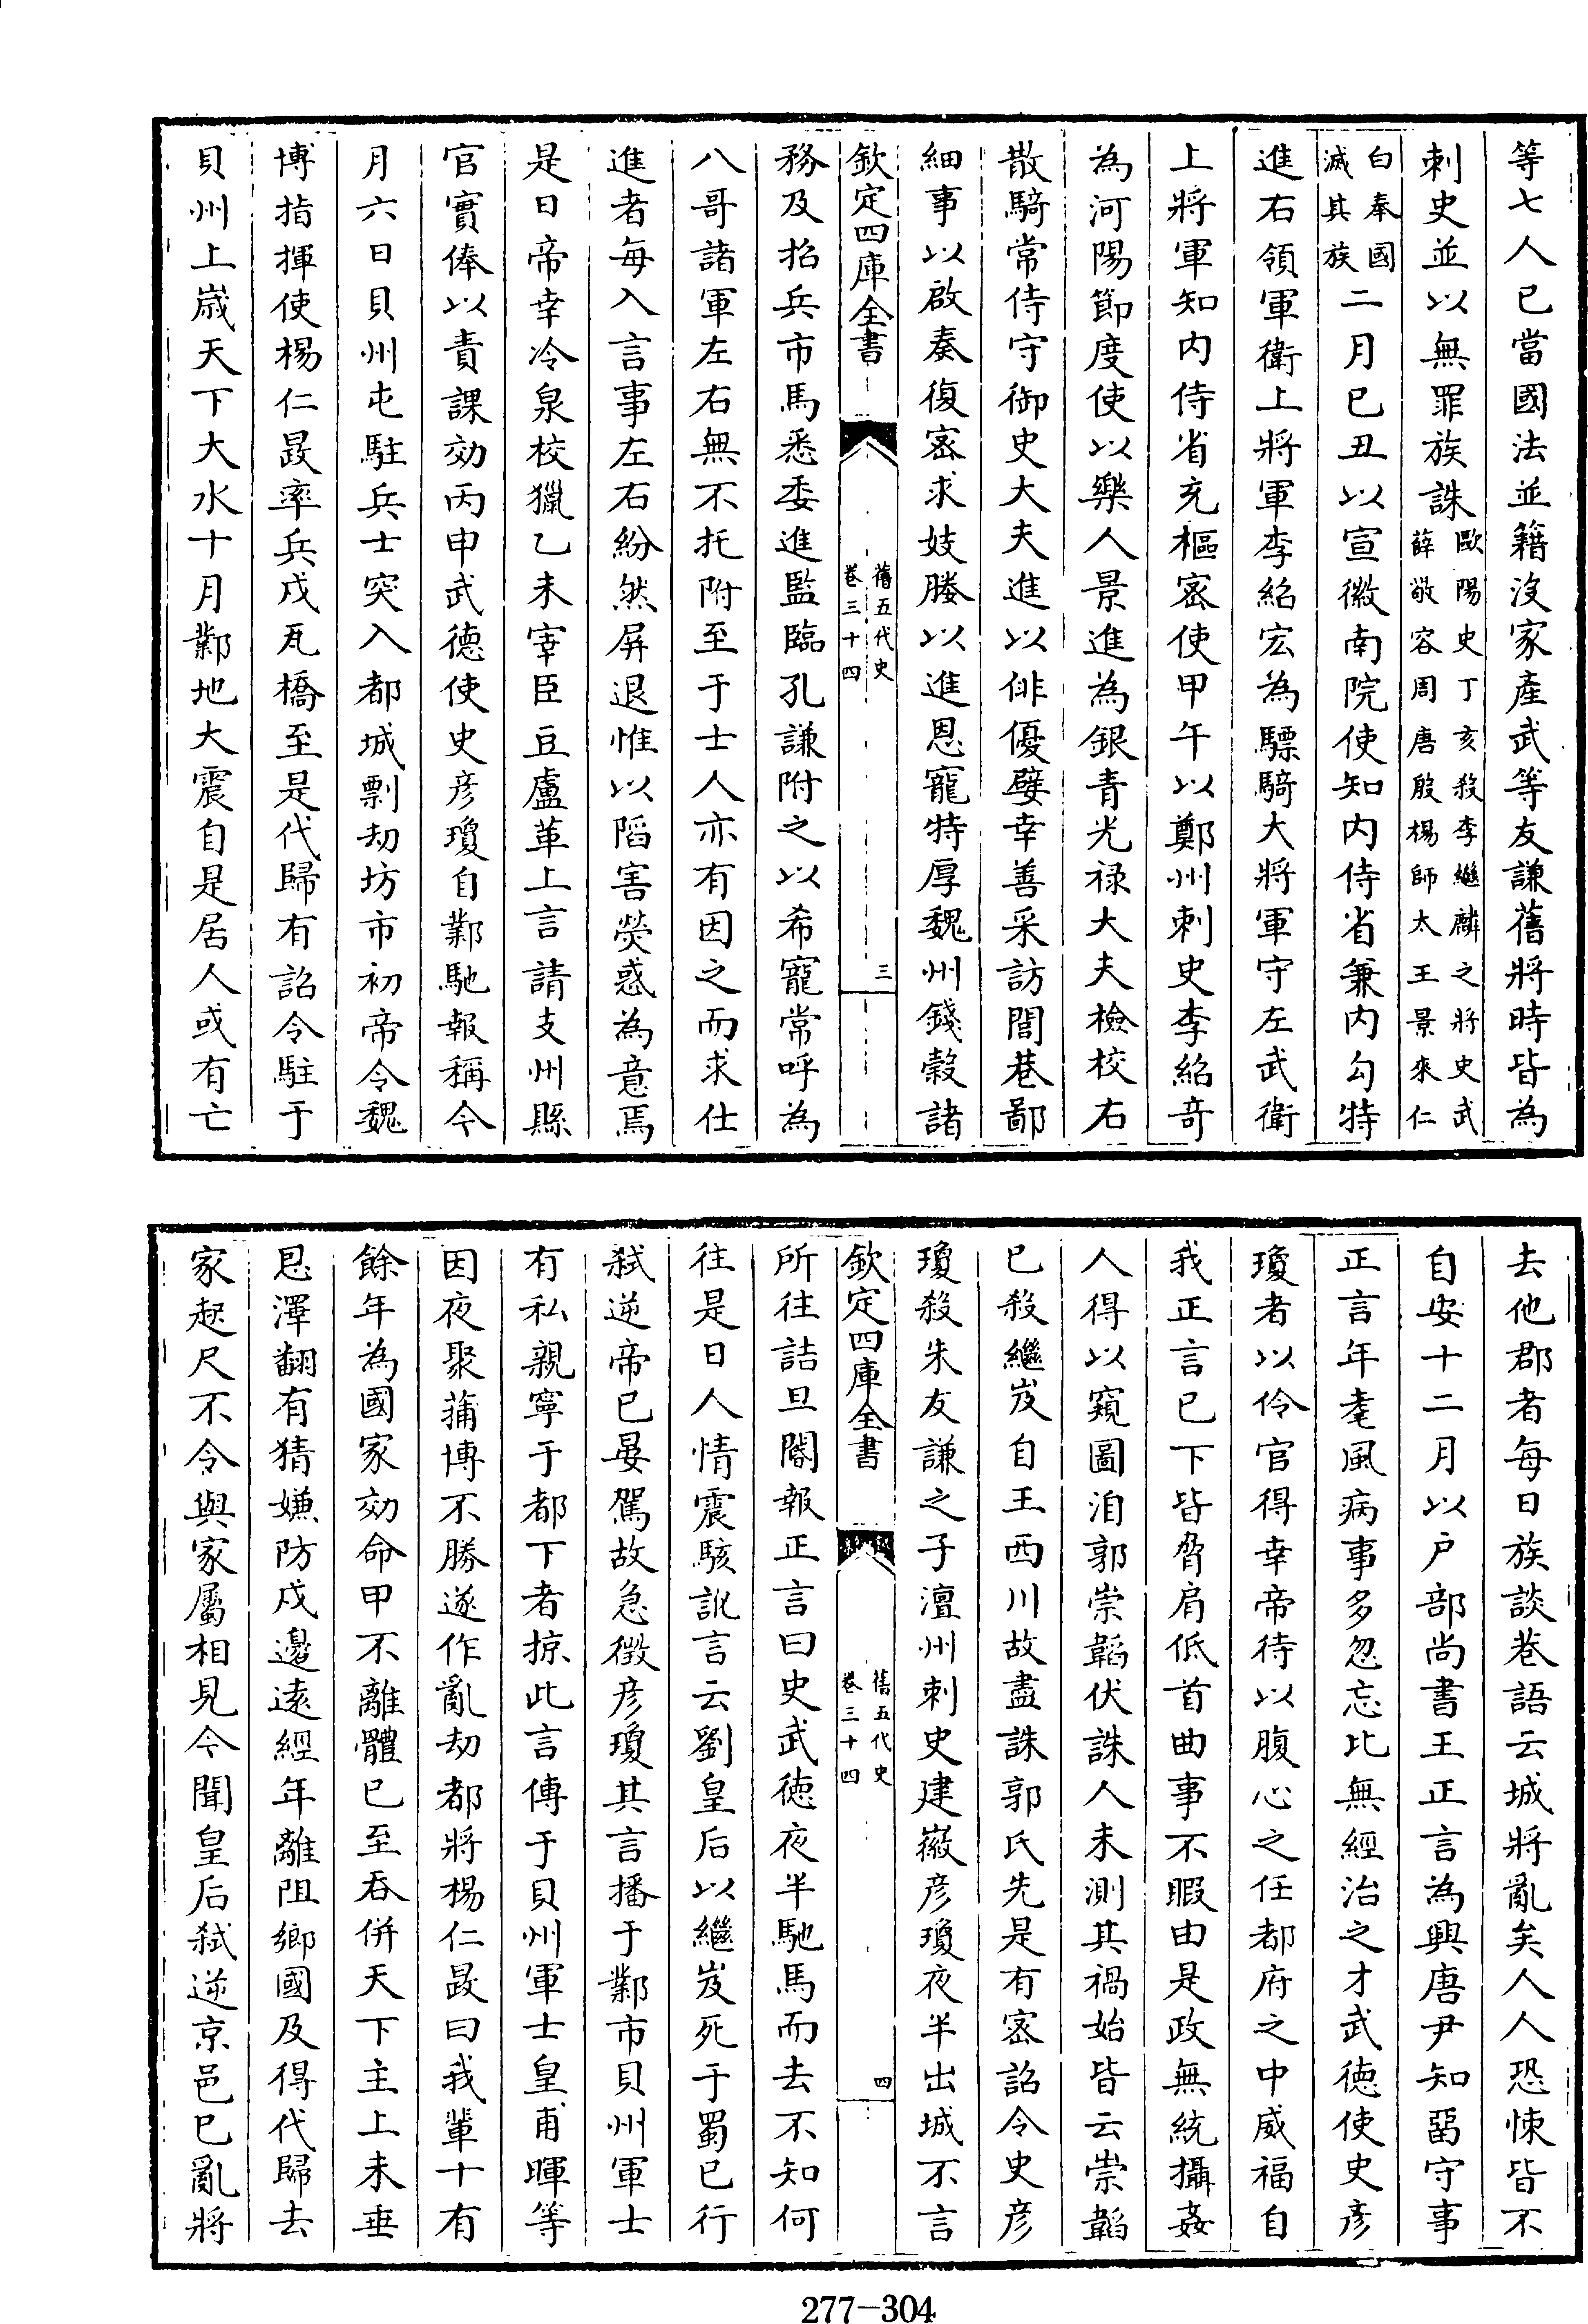 等七人已當國法並籍沒家產武等友謙舊將時皆為
刺史並以無罪族誅歐陽史丁亥殺李繼麟之將史武薛敬容周唐殷楊師太王景來仁
白奉國滅其族二月已丑以宣徽南院使知內侍省兼內勾特
進右領軍衛上將軍李紹宏為驃騎大將軍守左武衛
上將軍知內侍省充樞密使甲午以鄭州刺史李紹奇
為河陽節度使以樂人景進為銀青光祿大夫檢校右
散騎常侍守御史大夫進以俳優嬖幸善采訪閭巷鄙
細事以啟奏復密求妓媵以進恩寵特厚魏州錢穀諸
欽定四庫全書
舊五代史
卷三十四
三
務及招兵市馬悉委進監臨孔謙附之以希寵常呼為
八哥諸軍左右無不托附至于士人亦有因之而求仕
進者每入言事左右紛然屏退惟以陷害熒惑為意焉
是日帝幸冷泉校獵乙未宰臣豆盧革上言請支州縣
官實俸以責課効丙申武德使史彥瓊自鄴馳報稱今
月六日貝州屯駐兵士突入都城剽刼坊市初帝令魏
博指揮使楊仁晸率兵戍瓦橋至是代歸有詔令駐于
貝州上歲天下大水十月鄴地大震自是居人或有亡
去他郡者每日族談巷語云城將亂矣人人恐悚皆不
自安十二月以戶部尚書王正言為興唐尹知留守事
正言年耄風病事多忽忘比無經治之才武德使史彥
瓊者以伶官得幸帝待以腹心之任都府之中威福自
我正言已下皆脅肩低首曲事不暇由是政無統攝姦
人得以窺圖洎郭崇韜伏誅人未測其禍始皆云崇韜
已殺繼岌自王西川故盡誅郭氏先是有密詔令史彥
瓊殺朱友謙之子澶州刺史建徽彥瓊夜半出城不言
欽定四庫全書
舊五代史
卷三十四
四
所往詰旦閽報正言曰史武德夜半馳馬而去不知何
往是日人情震駭訛言云劉皇后以繼岌死于蜀已行
弒逆帝已晏駕故急徵彥瓊其言播于鄴市貝州軍士
有私親寧于都下者掠此言傳于貝州軍士皇甫暉等
因夜聚蒱博不勝遂作亂刼都將楊仁晸曰我輩十有
餘年為國家効命甲不離體已至吞併天下主上未垂
恩澤翻有猜嫌防戍邊遠經年離阻鄉國及得代歸去
家咫尺不令與家屬相見今聞皇后弒逆京邑已亂將
277-304